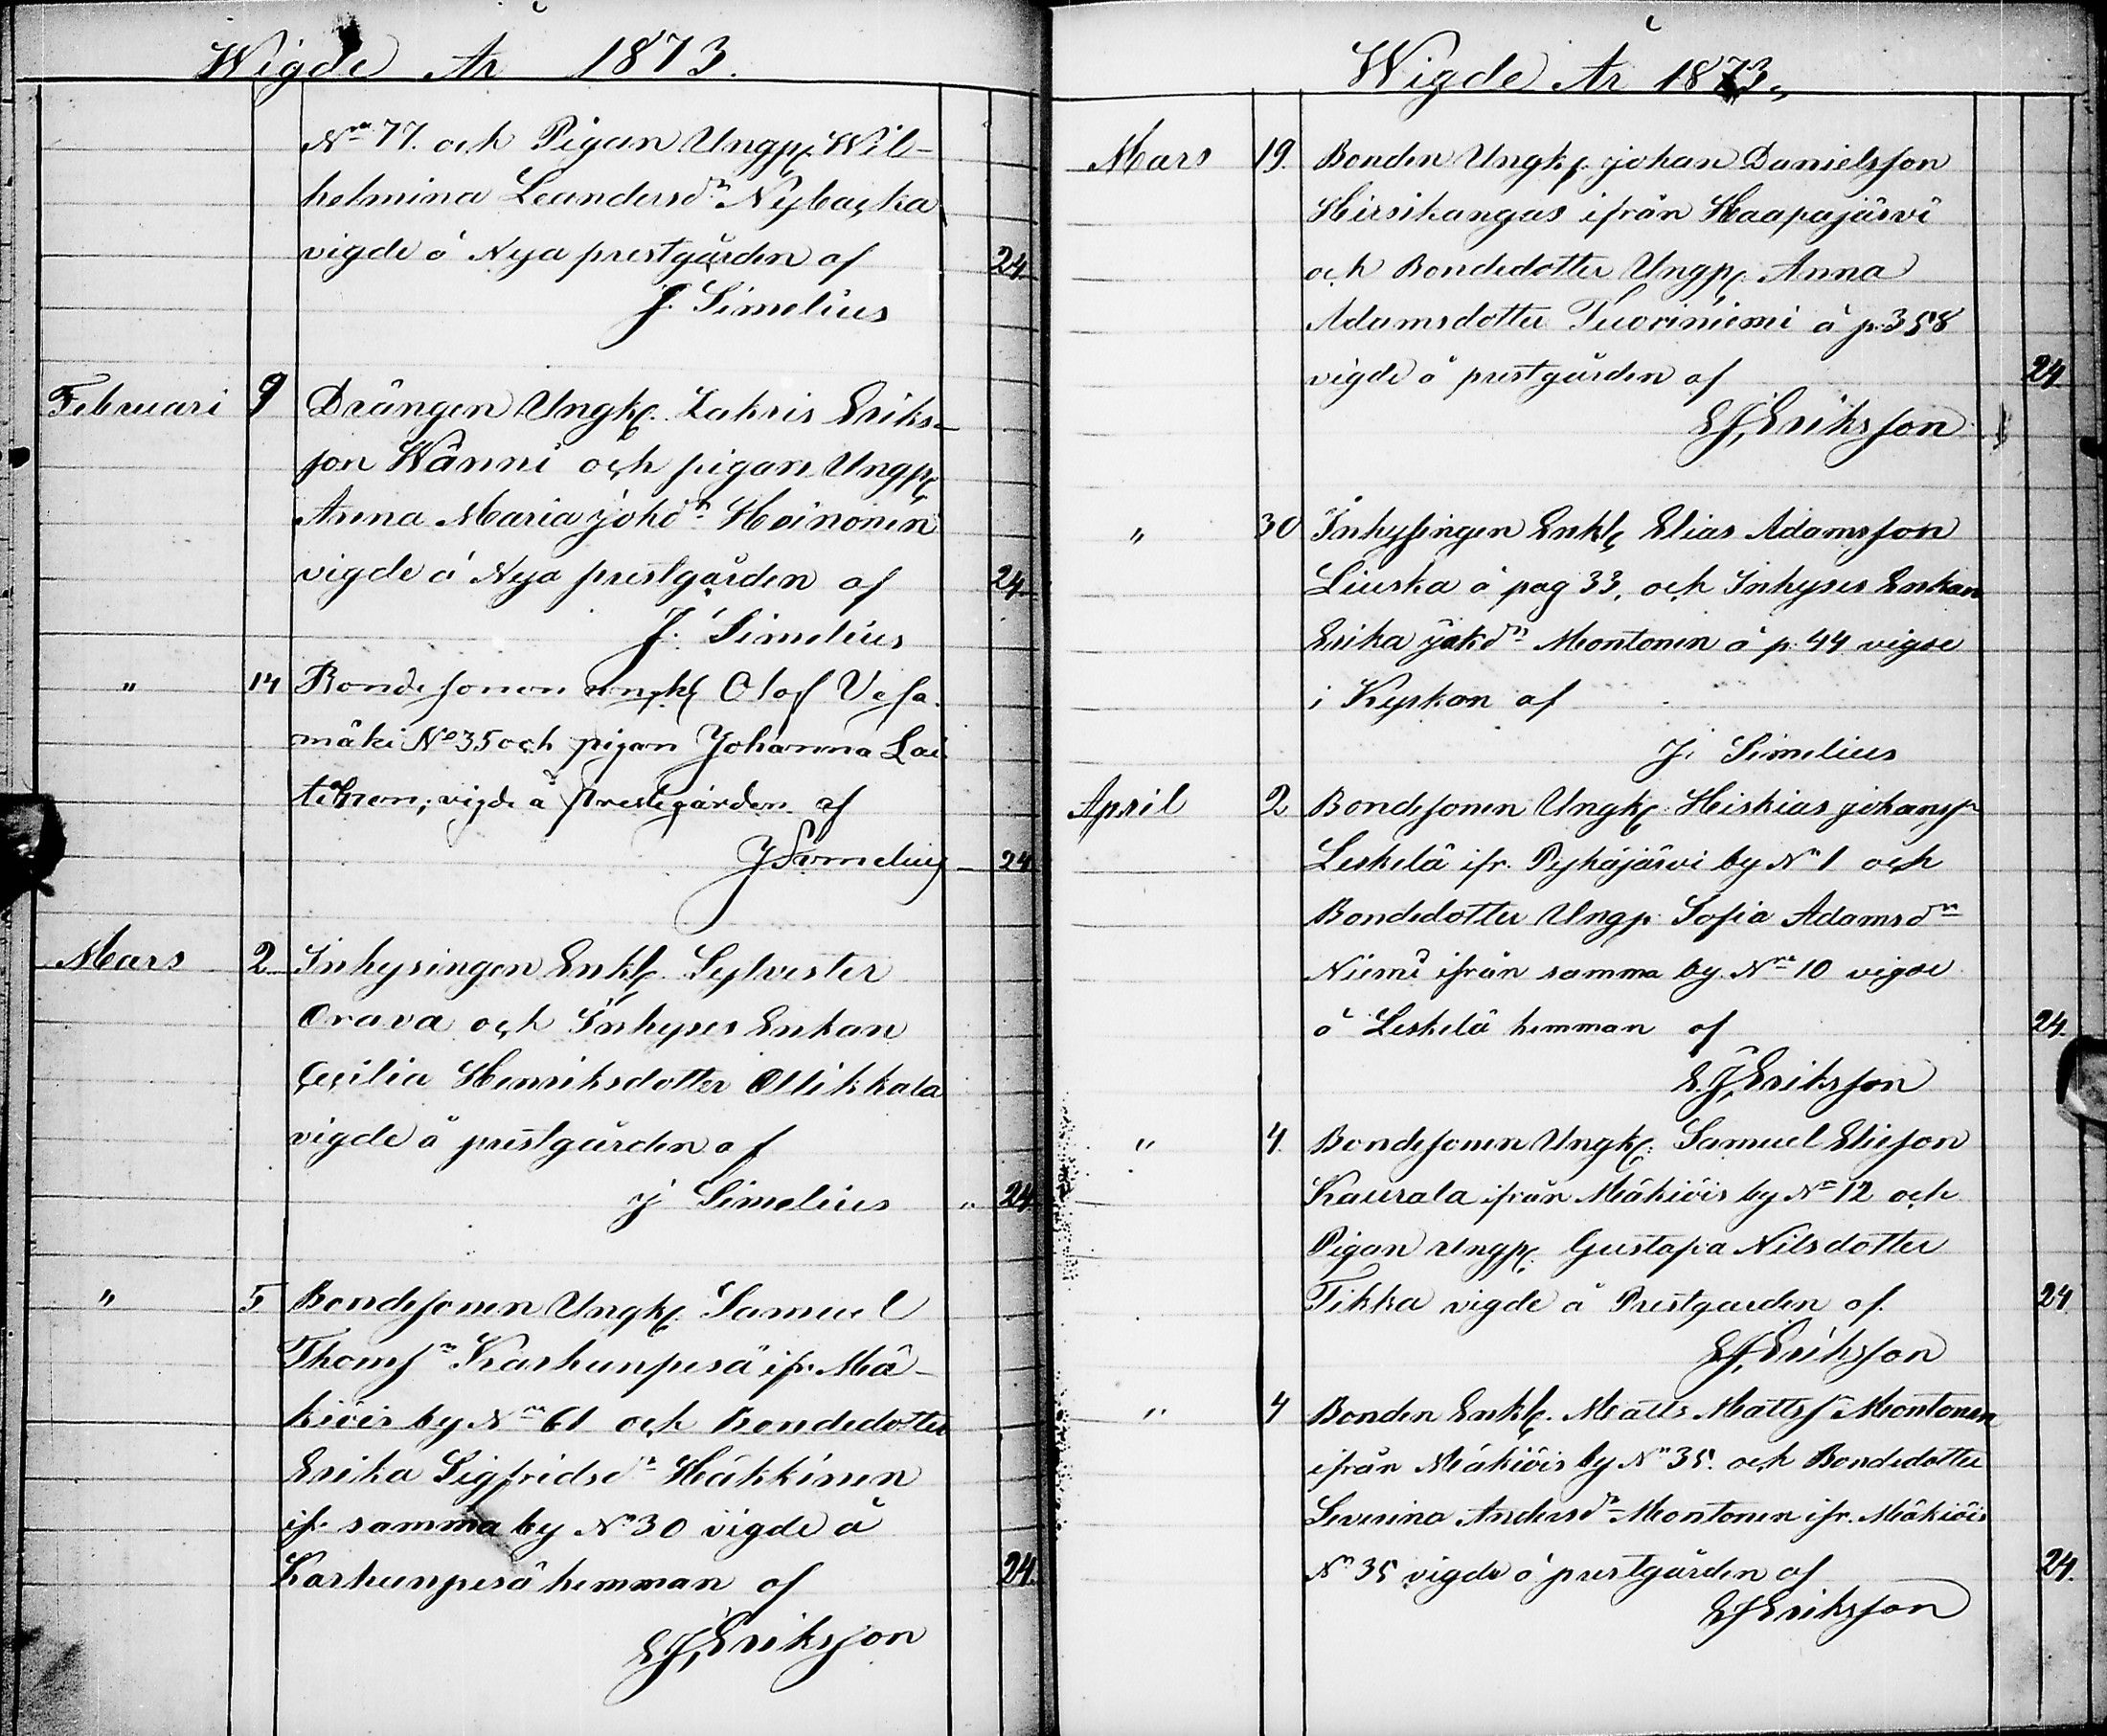 Wigde År 1873.
No 77. och Pigan Ungp. Wil-
helmina Leandersdr Nybacka
vigde å Nya prestgården af 24
J. Simelius
Februari 9 Drängen Ungk. Zakris Eriks-
son Wänni och pigan Ungp.
Anna Maria Johdr Heinonen
vigde å Nya prestgården af 24
J. Simelius
" 14 Bondesonen ungk. Olof Vesa-
mäki No 35 och pigan Johanna Lai-
tinen; vigde å Prestegården af
J Simelius 24
Mars 2 Inhysingen Enkl. Sylvester
Orava och Inhyses Enkan
Cecilia Henriksdotter Ollikkala
vigde å prestgården af
J Simelius " 24
" 5 Bondesonen Ungk. Samuel
Thomsn Karhunpesä ifr. Mä-
kiöis by No 61 och Bondedotter
Erika Sigfridsdr Häkkinen
ifr. samma by No 30 vigde å
Karhunpesä hemman af 24.
EJ, Eriksson
Wigde År 1873,
Mars 19. Bonden Ungk. Johan Danielsson
Hirsikangas ifrån Haapajärvi
och Bondedotter Ungp. Anna
Adamsdotter Tuoriniemi å p. 358
vigde å prestgården af 24.
EJ, Eriksson
" 30 Inhysingen Enkl. Elias Adamsson
Liuska å pag 33. och Inhyses Enkan
Erika Jakdr Montonen å p. 44 vigde
i Kyrkan af
J. Simelius
April 2 Bondesonen Ungk. Hiskias Johanss
Leskelä ifr. Pyhäjärvi by No 1 och
Bondedotter Ungp. Sofia Adamsdr
Niemi ifrån samma by No 10 vigde
å Leskelä hemman af 24.
E.J, Eriksson
" 4. Bondesonen Ungk. Samuel Elieson
Kaurala ifrån Mäkiöis by No 12 och
Pigan Ungp. Gustafva Nilsdotter
Tikka vigde å Prestgården af 24
EJ, Eriksson
" 4 Bonden Enkl. Matts Mattsn Montonen
ifrån Mäkiöis by No 35. och Bondedotter
Severina Andersdr Montonen ifr. Mäkiöis
No 35 vigde å prestgården af 24.
EJ Eriksson